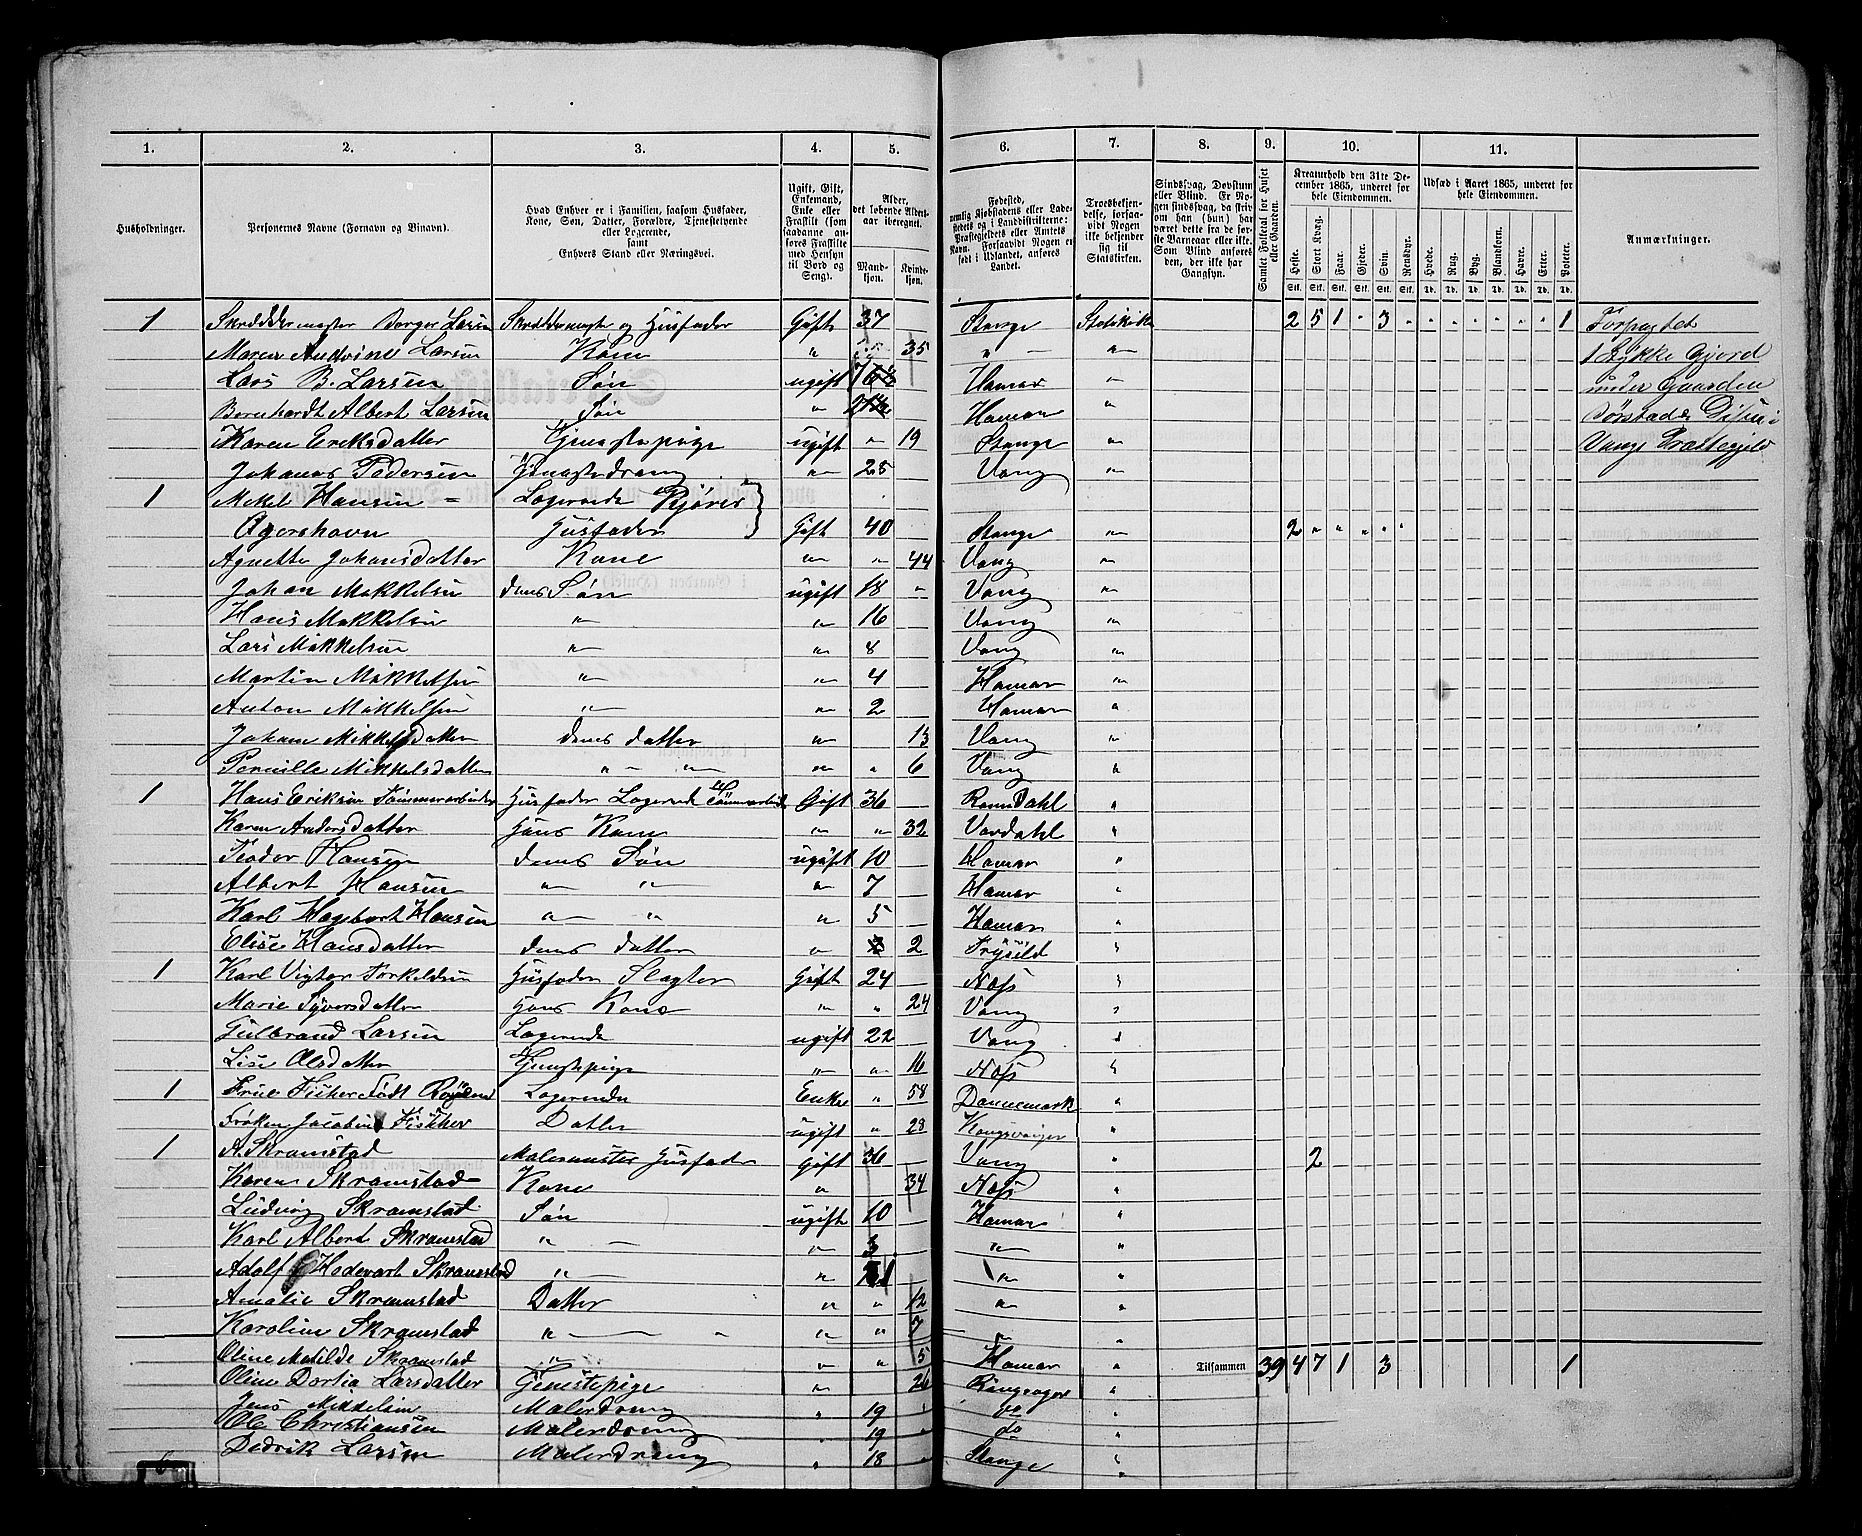 1. 2. 3. 4. 5. 6. 7. 8. 9. 10. 11.
Husholdninger.
Personernes Navne (Fornavn og Binavn).
Hvad Enhver er i Familien, saasom Husfader, Kone, Søn, Datter, Forældre, Tjenestetyende eller Logerende, samt Enhvers Stand eller Næringsvei.
Ugift, Gift, Enkemand, Enke eller Fraskilt (som saadanne anføres Fraskilte med Hensyn til Bord og Seng).
Alder, det løbende Aldersaar iberegnet.
Mandkjøn. Kvindekjøn.
Fødested, nemlig Kjøbstadens eller Ladestedets og i Landdistrikterne: Præstegjeldets eller Amtets Navn. Forsaavidt Nogen er født i Udlandet, anføres Landet.
Troesbekjendelse, forsaavidt Nogen ikke bekjender sig til Statskirken.
Sindssvag, Døvstum eller Blind. Er Nogen sindssvag, da skrives om han (hun) har været dette fra de første Barneaar eller ikke. Som Blind anføres den, der ikke har Gangsyn.
Samlet Folketal for Huset eller Gaarden.
Kreaturhold den 31te December 1865, underet for hele Eiendommen.
Heste. Stort Kvæg. Faar. Gjeder. Svin. Rensdyr.
Udsæd i Aaret 1865, underet for hele Eiendommen.
Hvede. Rug. Byg. Blandkorn. Havre. Erter. Poteter.
Anmærkninger.
Stk. Stk. Stk. Stk. Stk. Stk. Td. Td. Td. Td. Td. Td. Td.
1 Skræddermester Borger Larsen Skræddermester og Husfader Gift 37 Stange Statskirke 2 5 1 - 3 1 Forpagtet
Maren Andrine Larsen Kone " 35 " " 1 Lykke Gjord
Lars B. Larsen Søn ugift Hamar " under Gaarden
Bernhardt Albert Larsen Søn " Hamar "
Karen Eriksdatter Tjenestepige ugift " 19 Stange " Vangs Præstegjeld
Johanes Pedersen Tjenestedreng " 25 Vang "
1 Mikel Hansen = Logerende
Agershavn Husfader Gift 40 Stange " 2 " " " " "
Agnette Johansdatter Kone " " 44 Vang "
Johan Mikkelsen deres Søn ugift 18 " Vang "
Hans Mikkelsen " " 16 Vang "
Lars Mikkelsen " " 8 Vang "
Martin Mikkelsen " " 4 Hamar "
Anton Mikkelsen " " 2 Hamar "
Johane Mikkelsdatter deres datter " 13 Vang "
Pernille Mikkelsdatter " " " " 6 Vang "
1 Hans Eriksen Tømmerarbeider Husfader Logerende Tømmerarbeider Gift 36 Romsdahl "
Karen Andersdatter Hans Kone " " 32 Verdahl "
Teodor Hansen deres Søn ugift 10 Hamar "
Albert Hansen " " " 7 Hamar "
Karl Hagebart Hansen " " " 5 Hamar "
Elise Hansdatter deres datter " 2 Trysild "
1 Karl Vigtor Torkeldsen Husfader Slagter Gift 24 Næs "
Marie Syversdatter Hans Kone " " 24 Vang "
Gulbrand Larsen Logerende ugift 22 Vang "
Lise Olsdatter Tjenstepige " " 16 Næs "
1 Frue Fischer født Logerende Enke " 58 Dannemark "
Frøken Jacobine Fischer Datter ugift " 28 Kongsvinger "
1 A. Skramstad Malermester Husfader Gift 36 Vang " 2
Karen Skramstad Kone " 34 Næs "
Ludvig Skramstad Søn ugift 10 Hamar "
Karl Albert Skramstad " " 3 " "
Adolf Hedevart Skramstad " " 1 " "
Amalie Skramstad Datter " " 12 " "
Karoline Skramstad " " " 7 " "
Oline Matilde Skramstad " " " 5 Hamar " Tilsammen 39 4 7 1 3 1
Oline Dortia Larsdatter Tjenestepige " 26 Ringsager "
Jens Mikkelsen Malerdreng " 19 do "
Ole Christiansen Malerdreng " 19 do "
Dedrik Larsen Malerdreng " 18 Stange "